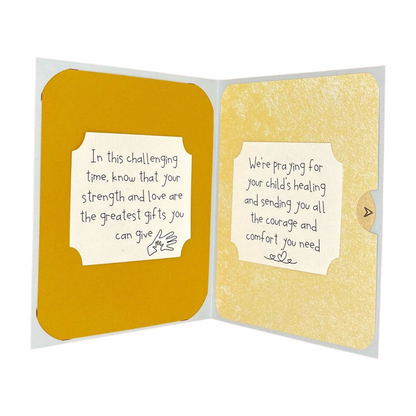 In this challenging
time, know that your
strength and love are
the greatest gifts you
can give
We're praying for
your child's healing
and sending you all
the courage and
comfort you need